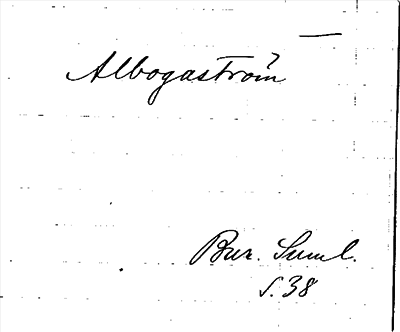 Albogaström
Bur. Suml.
s. 38